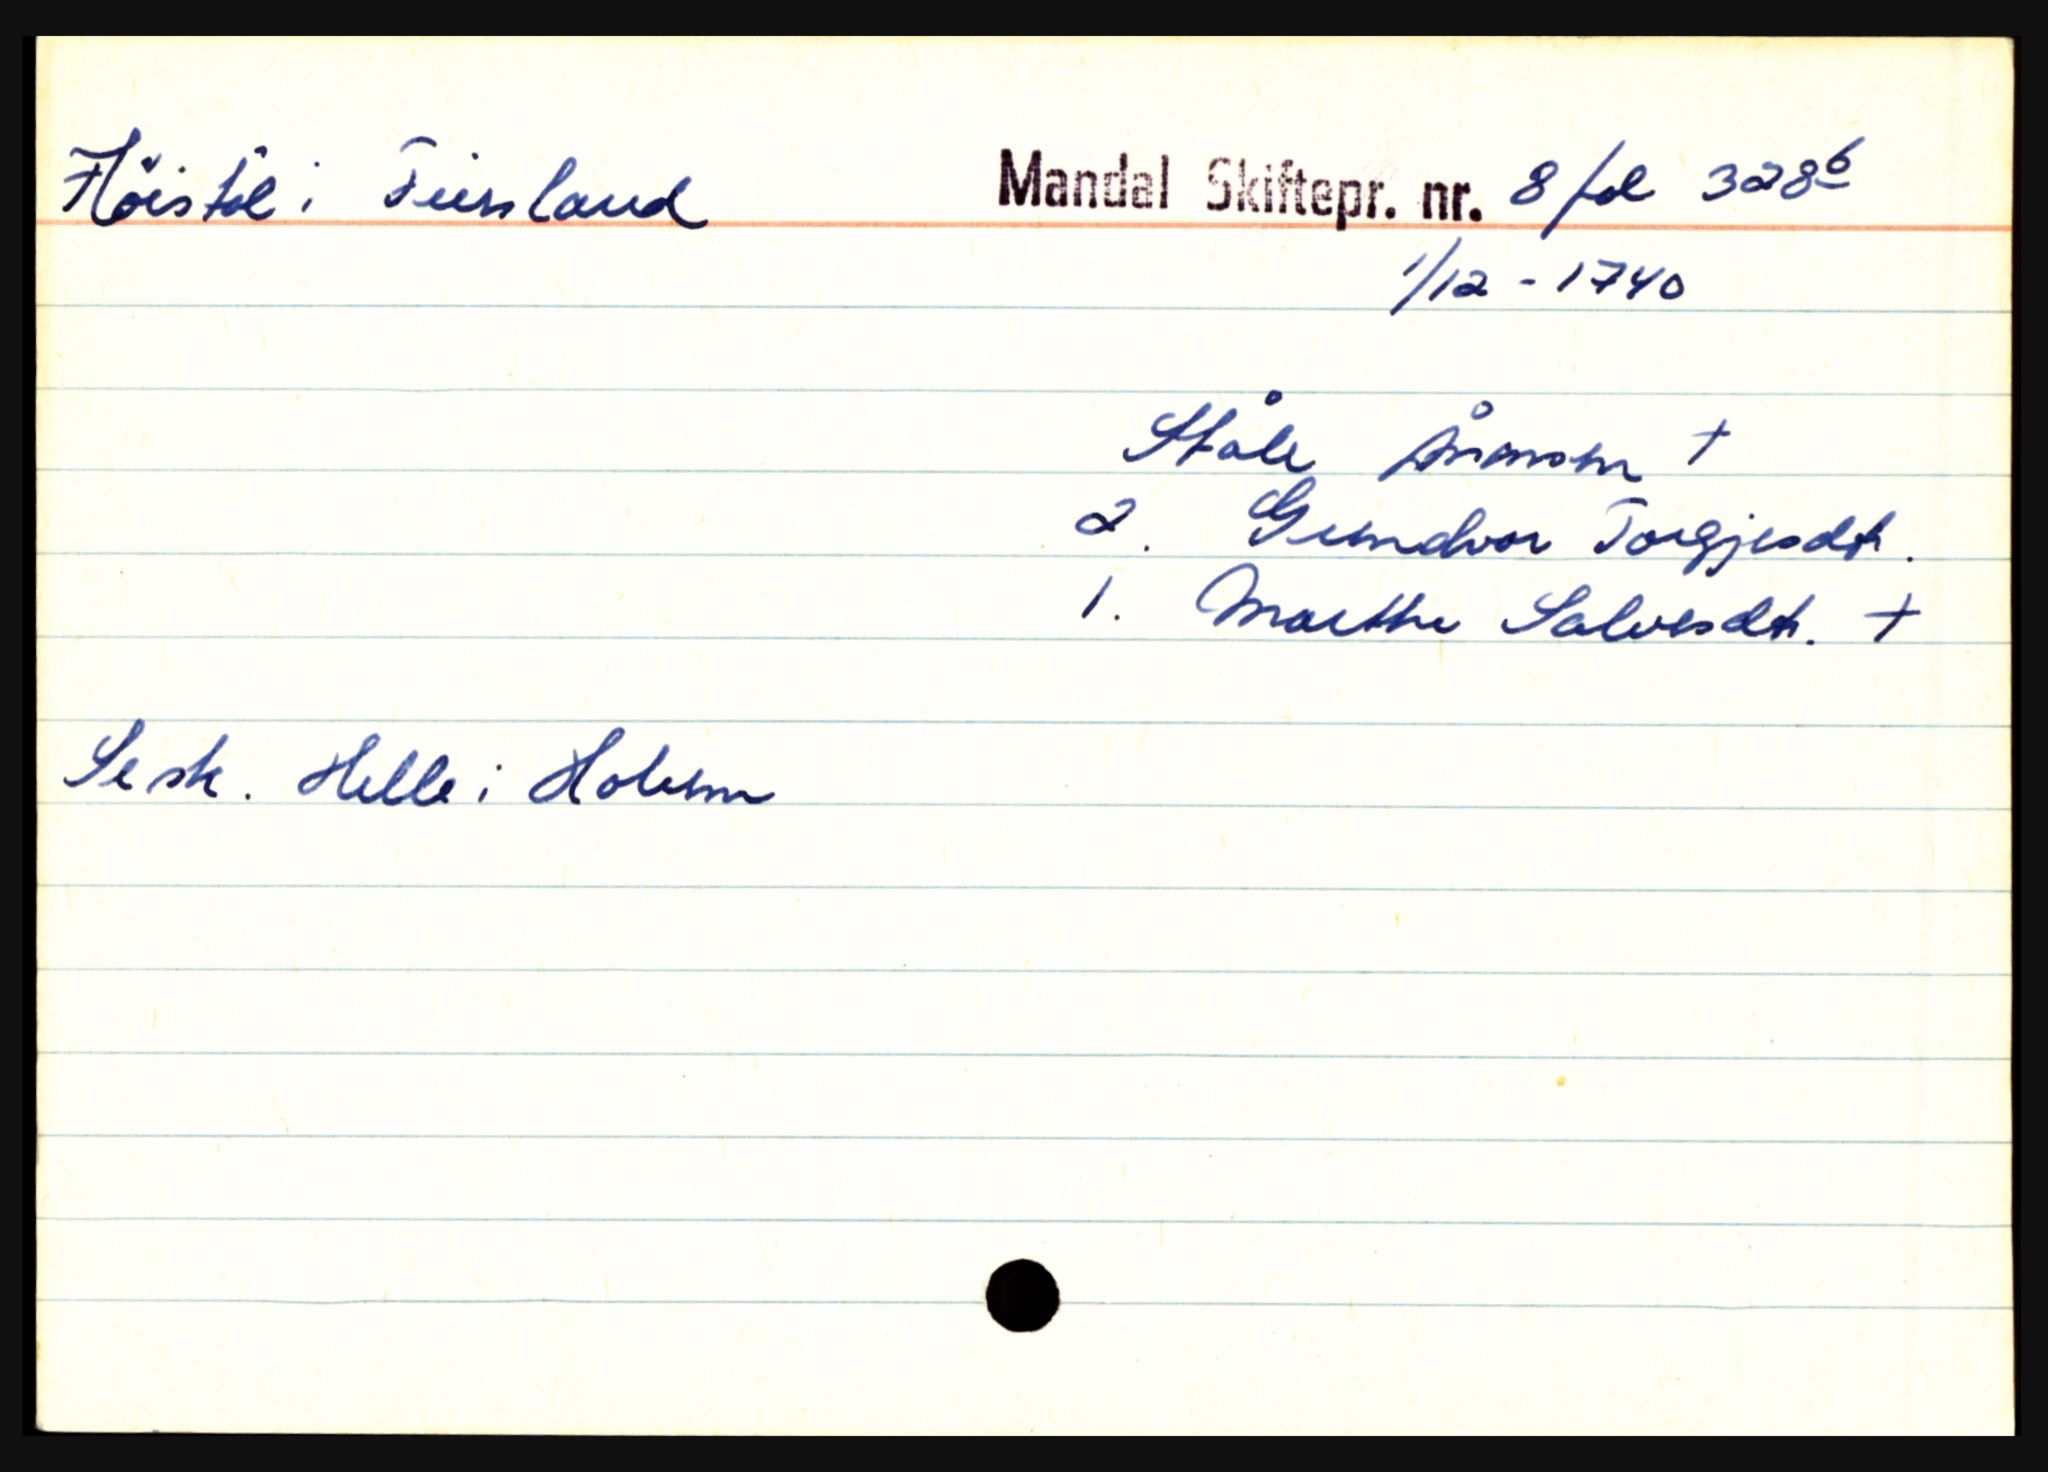 Höistöl i Finsland Mandal Skiftepr. nr. 8 fol 328b
1/12 - 1740
Ståle Ånonsen †
2. Gundvor Torgjesdtr.
1. Marthe Salvesdtr. †
Se sk. Helle i Holum